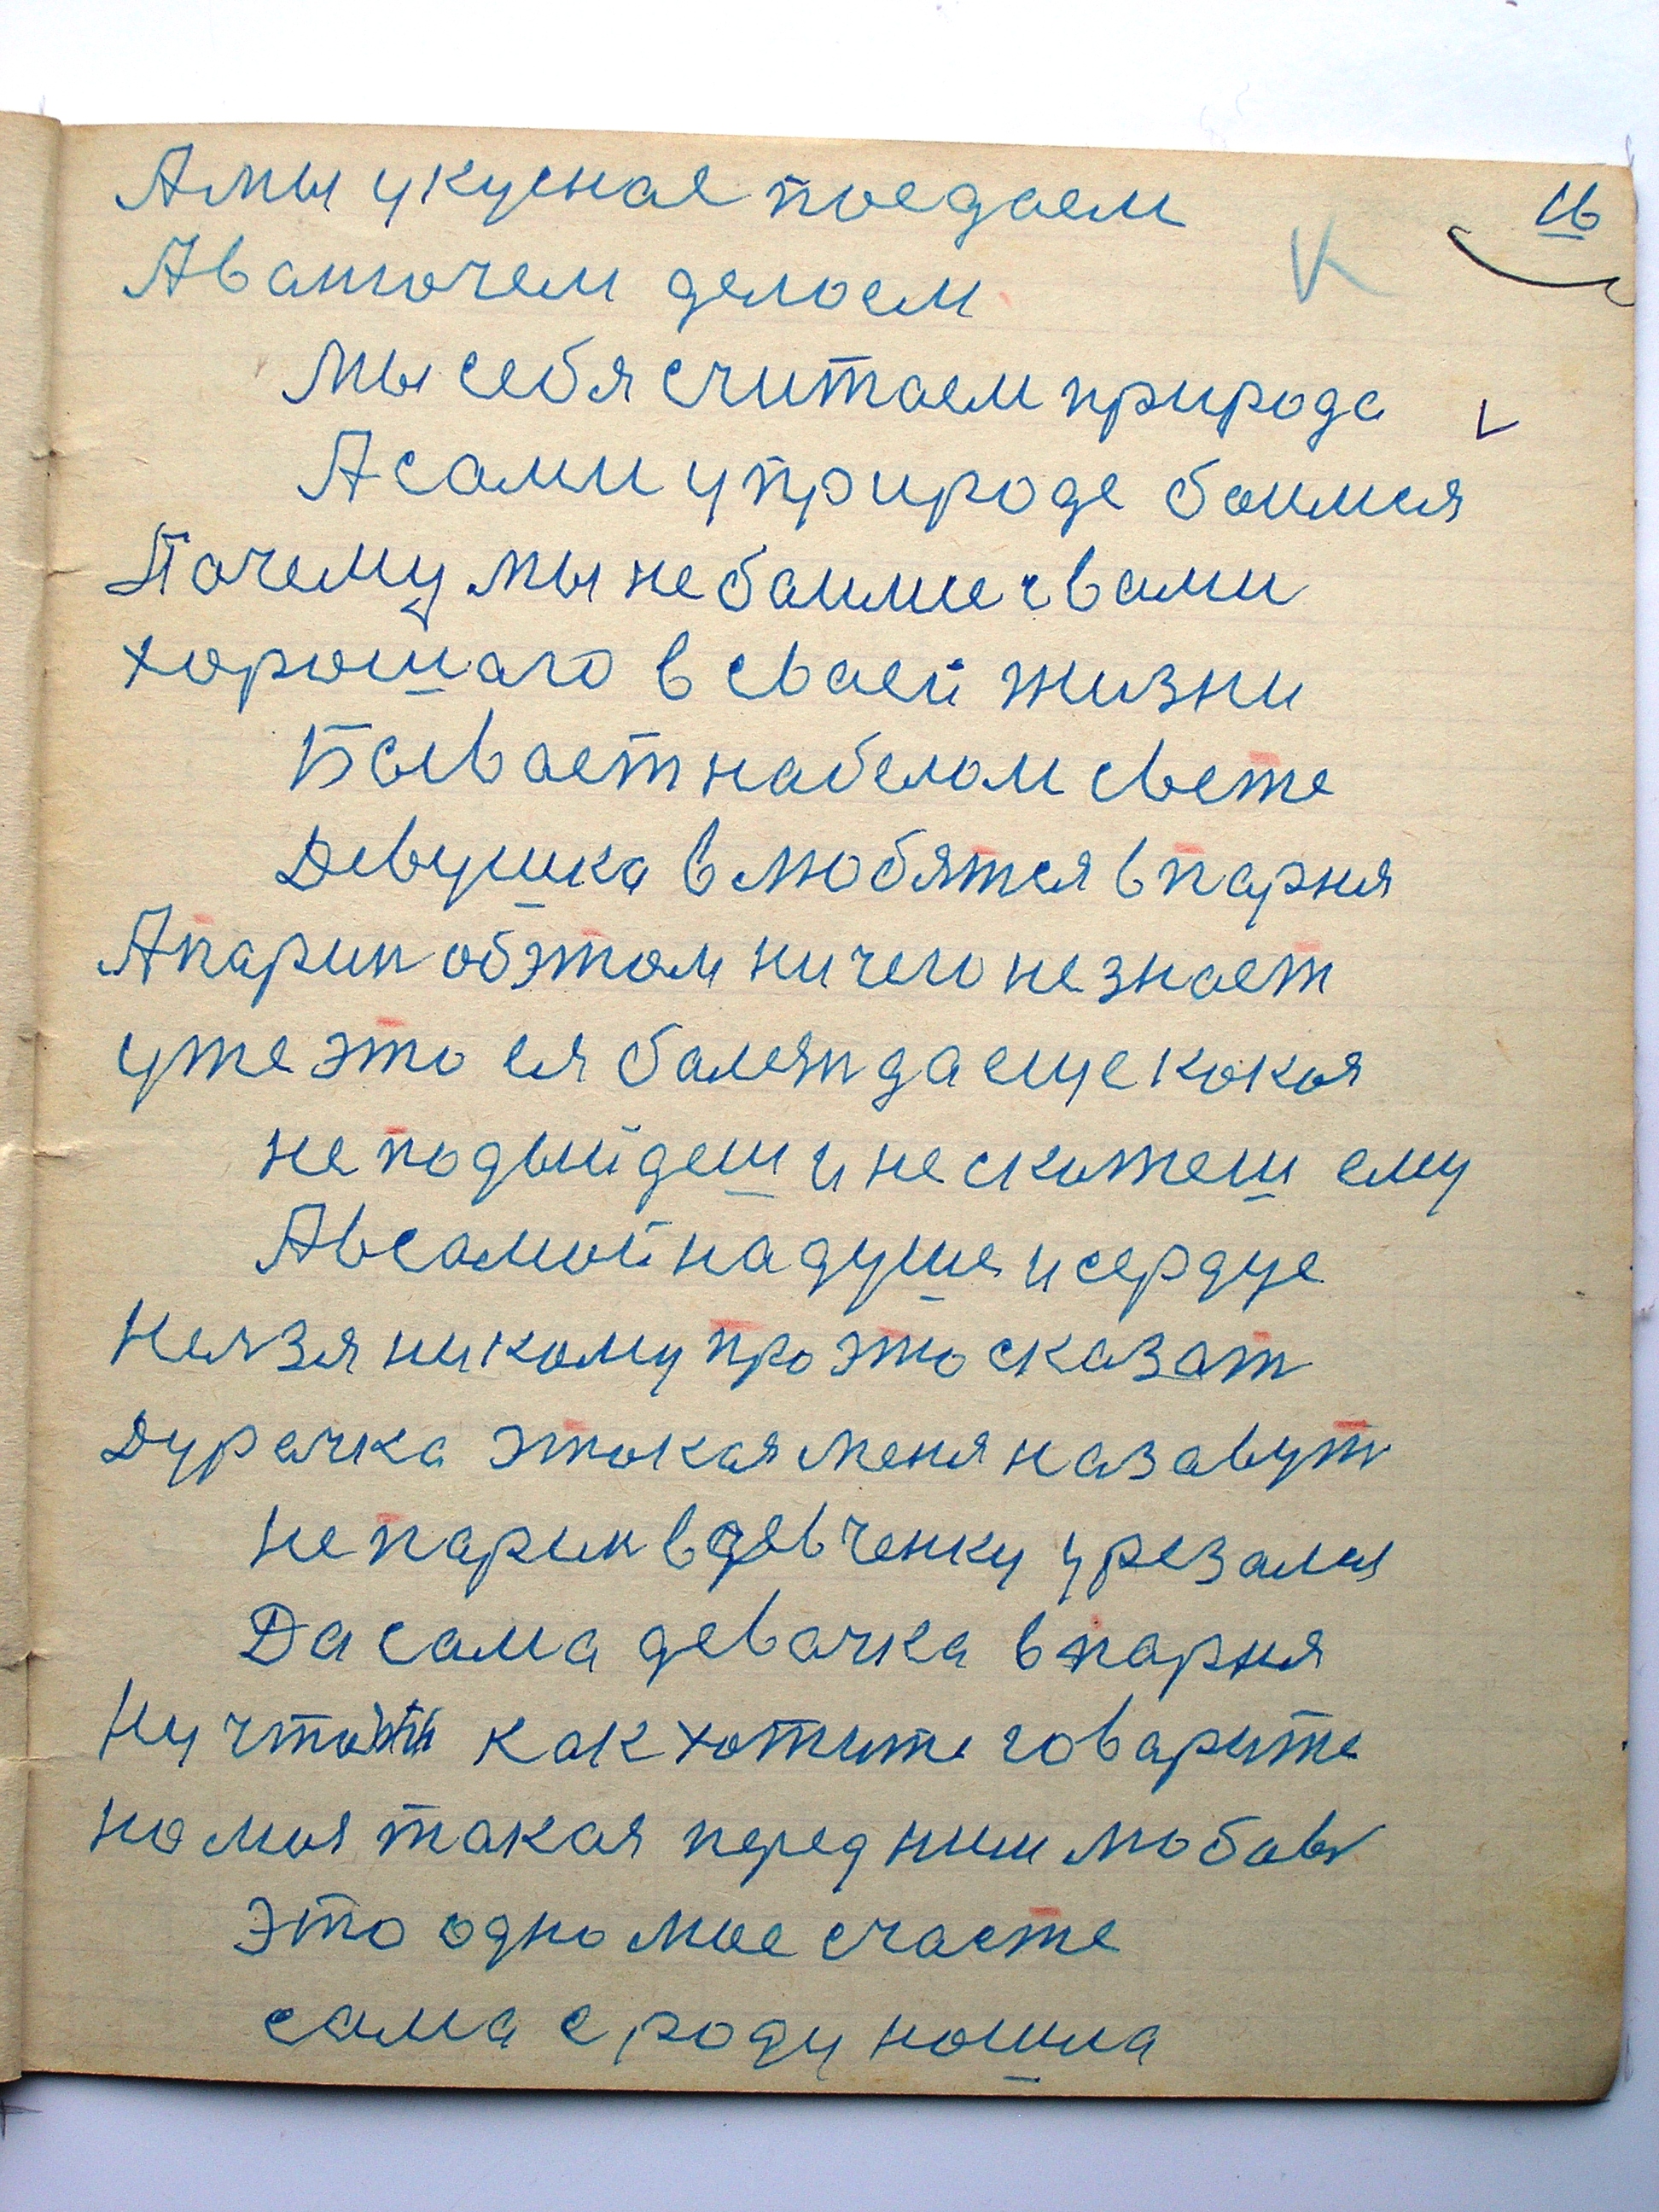 Амы укусная поедаем
16
Аваточем делоем
К
Мы себя считаем природа
Асами уприроде боимся
Почему мы небоимсе чвами
хорошаго в сваей жизни
Бывает набелом свете
Девушка влюбятся впарня
Апарин обэтом ничего незнает
уже это ея балезн да еще кокоя
неподыйдеш и не скожеш ему
Авсамой надуше исердце
Нелзя никому проэто сказат
Дурачка этокая меня назавут
непарин вдевченку урезался
Да сама девачка впарня
Ну что как хотите говарите
но моя такая перед ним любов
это одно мое счасте
сама сроду ношла